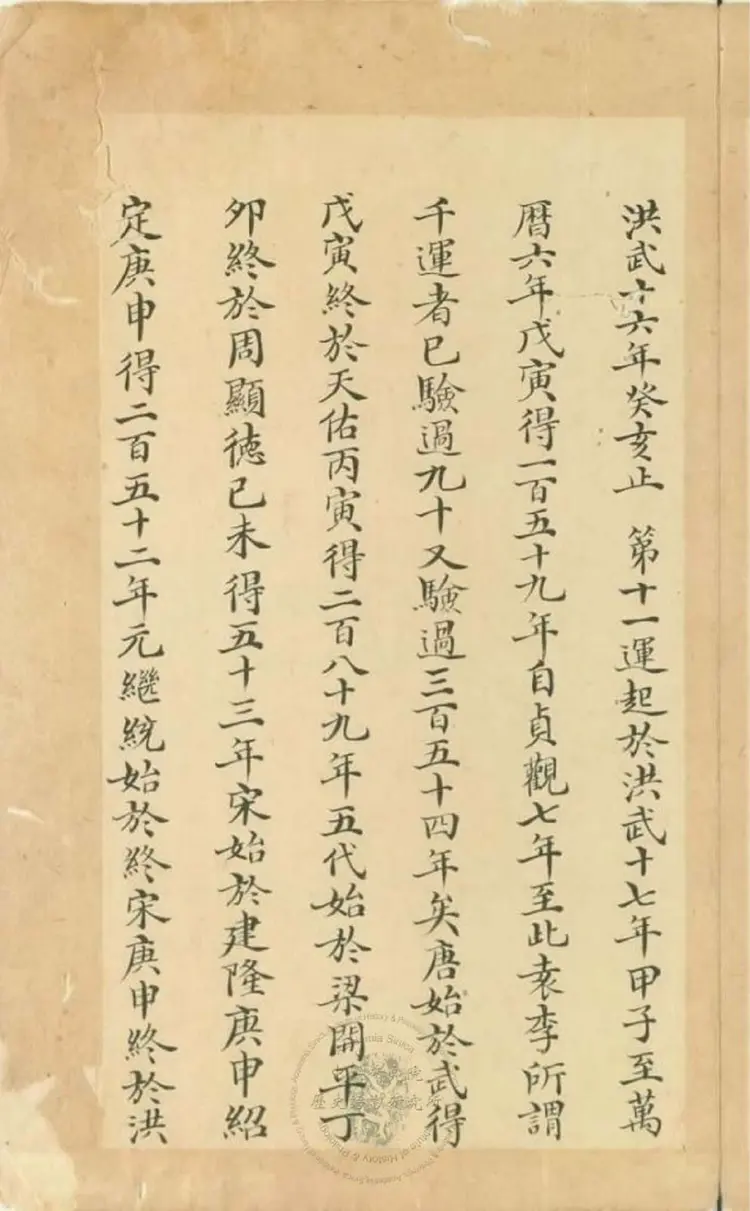 洪武十六年癸亥止　第十一運起於洪武十七年甲子至萬
暦六年戊寅得一百五十九年自貞觀七年至此袁李所謂
千運者已驗過九十又驗過三百五十四年矣唐始於武得
戊寅終於天佑丙寅得二百八十九年五代始於梁開平丁
卯終於周顯徳己未得五十三年宋始於建隆庚申紹
定庚申得二百五十二年元繼統始於終宋庚申終於洪